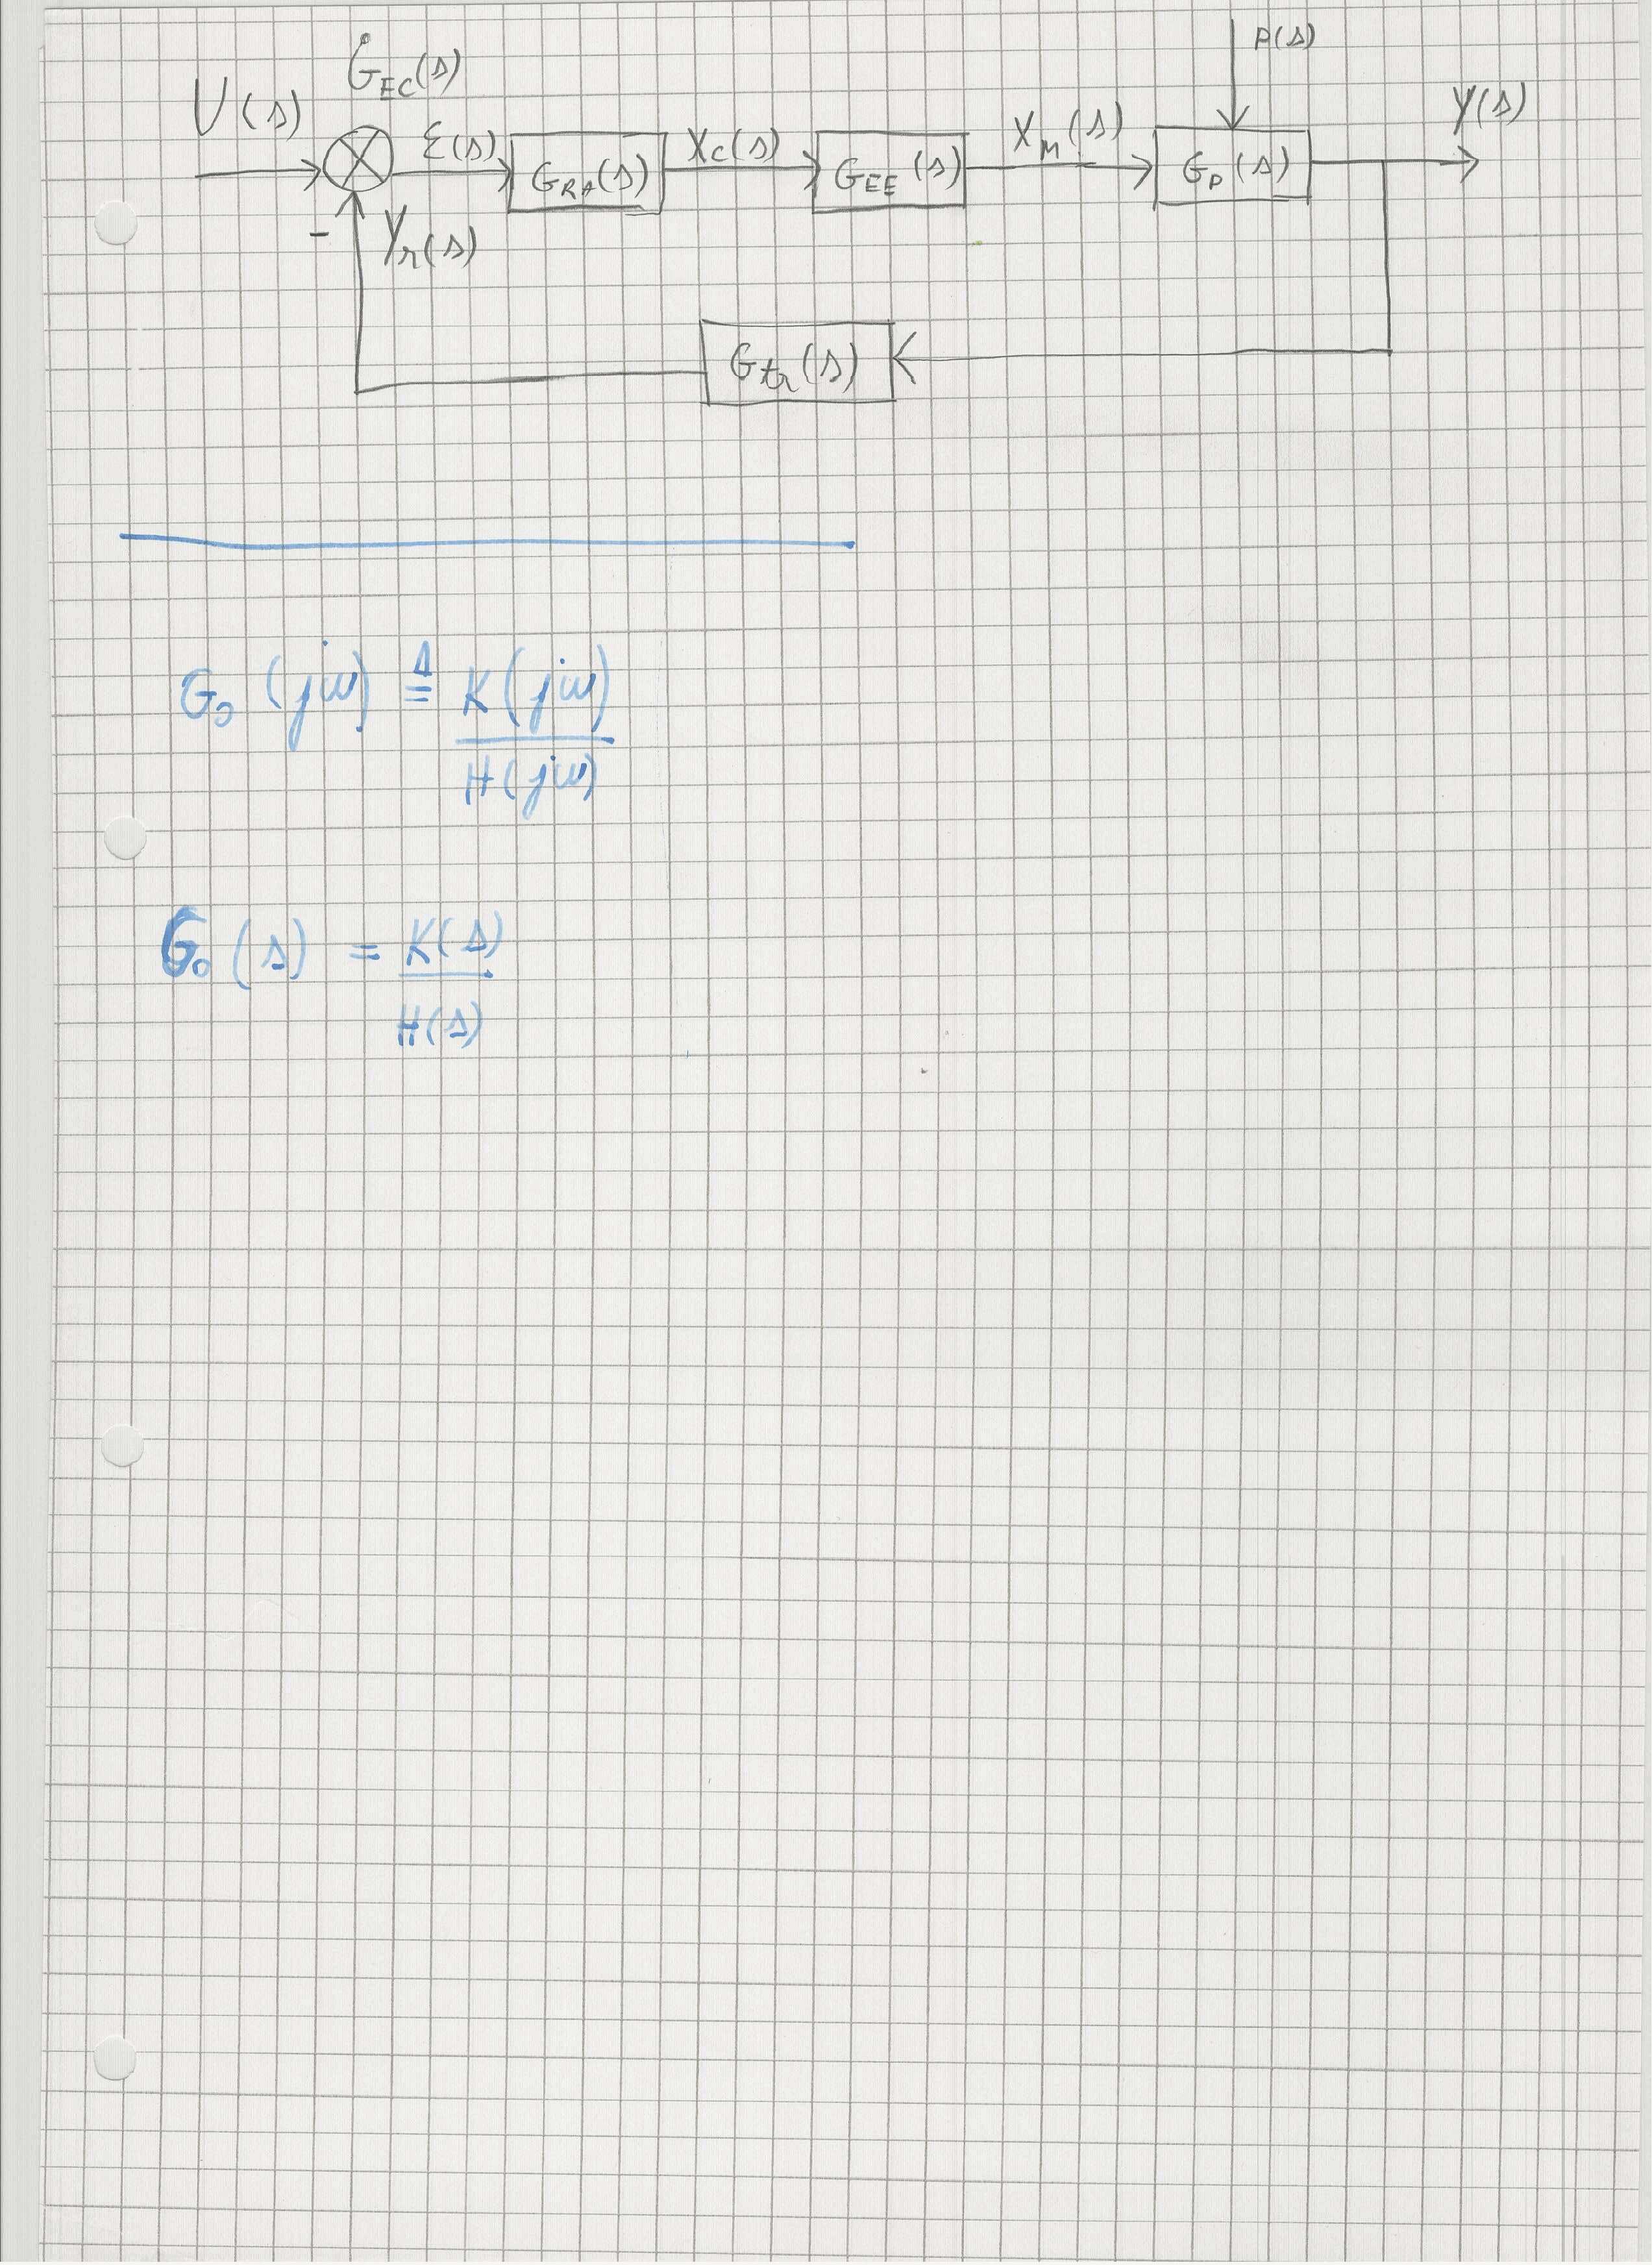 G_EC(s) P(s)
U(s) ε(s) G_RA(s) X_C(s) G_EE(s) X_m(s) G_P(s) Y(s)
- Y_r(s)
G_tr(s)
G_0(jω) ≜ K(jω)
H(jω)
G_0(s) = K(s)
H(s)